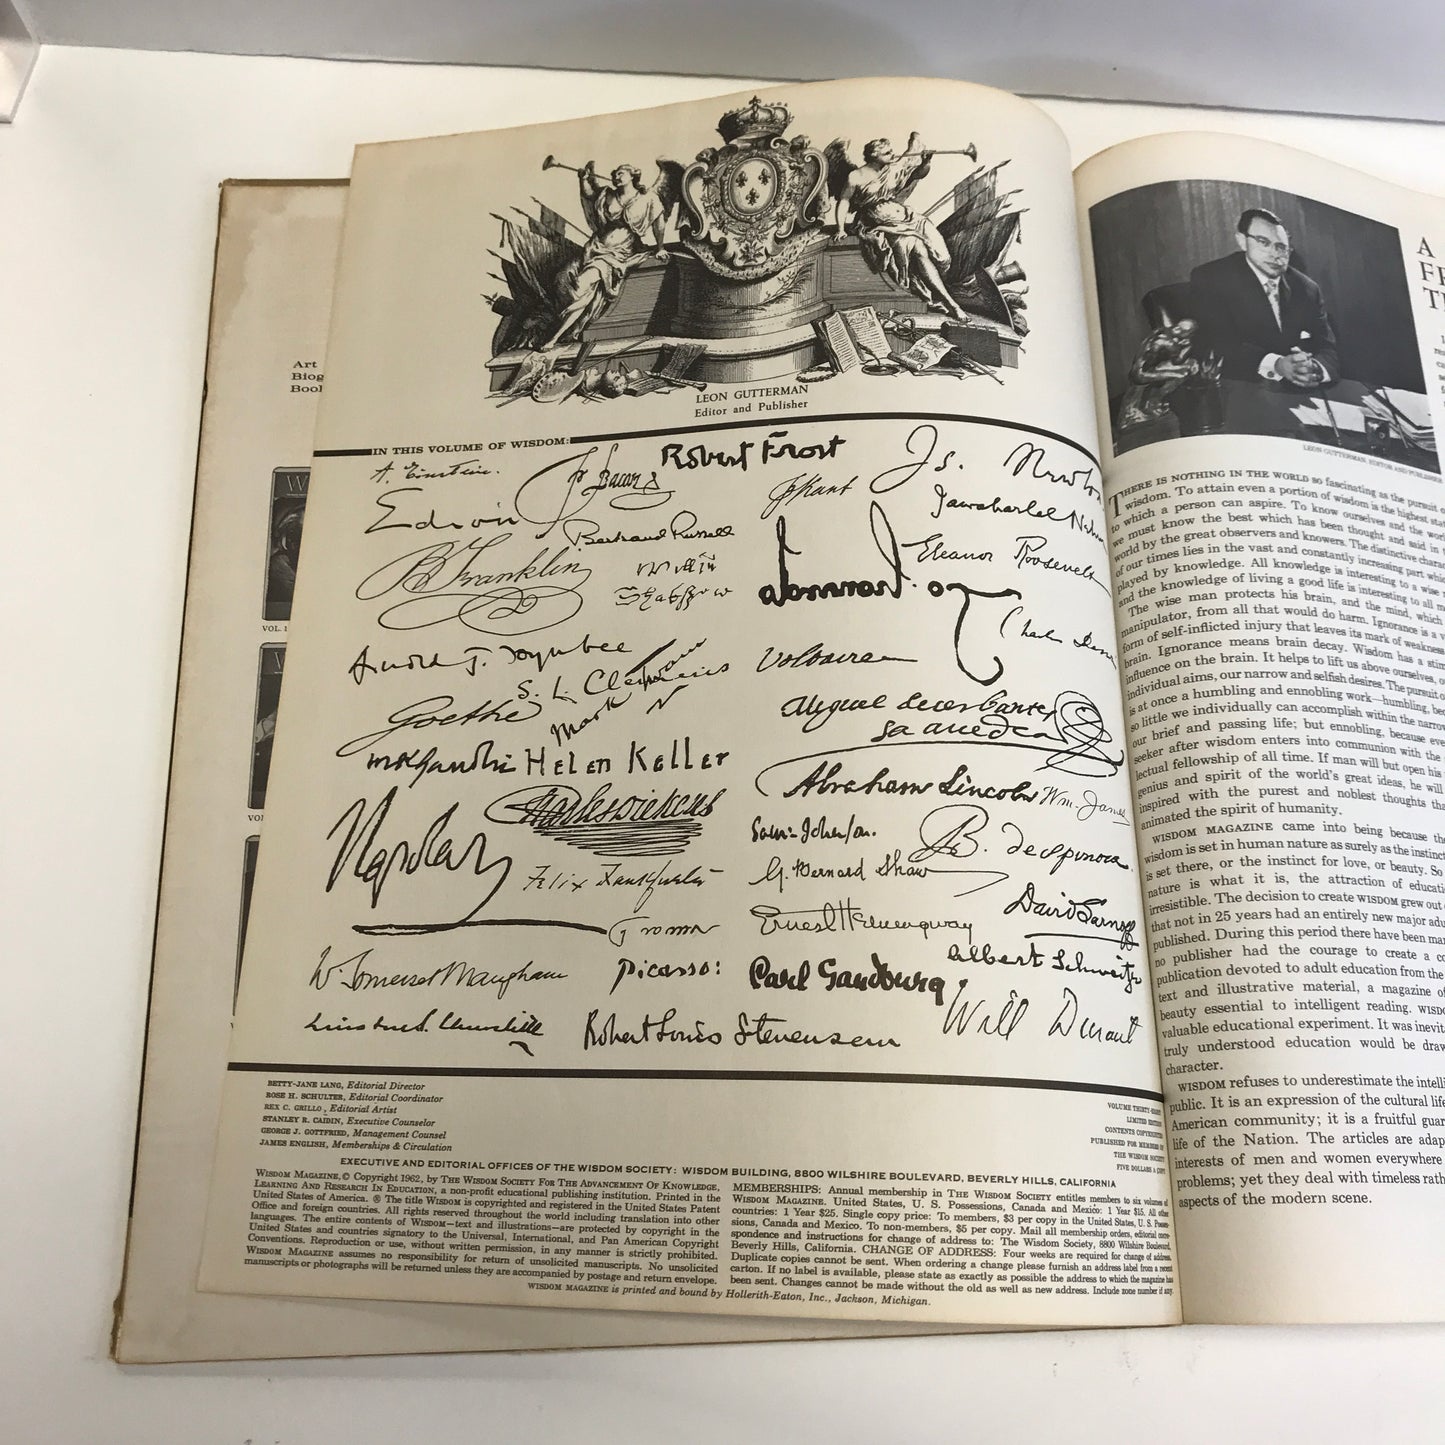 Art
Biog
Book
VOL. 1
LEON GUTTERMAN
Editor and Publisher
IN THIS VOLUME OF WISDOM:
A. Einstein.
Fr Bacon
Robert Frost
Is. Newton
Edison
I Kant
Jawaharlal Nehru
B Franklin
Bertrand Russell
Eleanor Roosevelt
William
Shakspere
Charles Darwin
Arnold J. Toynbee
Voltaire
S. L. Clemens
Mark Twain
Goethe
Miguel de cerbantes
saavedra
MKGandhi
Helen Keller
Abraham Lincoln
Wm. James
Charles Dickens
Sam: Johnson.
B. despinoza
Napoleon
Felix Frankfurter
G. Bernard Shaw
David Sarnoff
Ernest Hemingway
Albert Schweitzer
W. Somerset Maugham
Picasso:
Carl Sandburg
Winston S. Churchill
Robert Louis Stevenson
Will Durant
BETTY-JANE LANG, Editorial Director
ROSE H. SCHULTER, Editorial Coordinator
REX C. GRILLO, Editorial Artist
STANLEY R. CAIDIN, Executive Counselor
GEORGE J. GOTTFRIED, Management Counsel
JAMES ENGLISH, Memberships & Circulation
VOLUME THIRTY-EIGHT
LIMITED EDITION
CONTENTS COPYRIGHTED
PUBLISHED FOR MEMBERS OF
THE WISDOM SOCIETY
FIVE DOLLARS A COPY
EXECUTIVE AND EDITORIAL OFFICES OF THE WISDOM SOCIETY: WISDOM BUILDING, 8800 WILSHIRE BOULEVARD, BEVERLY HILLS, CALIFORNIA
WISDOM MAGAZINE, © Copyright 1962, by THE WISDOM SOCIETY FOR THE ADVANCEMENT OF KNOWLEDGE,
LEARNING AND RESEARCH IN EDUCATION, a non-profit educational publishing institution. Printed in the
United States of America. ® The title WISDOM is copyrighted and registered in the United States Patent
Office and foreign countries. All rights reserved throughout the world including translation into other
languages. The entire contents of WISDOM—text and illustrations—are protected by copyright in the
United States and countries signatory to the Universal, International, and Pan American Copyright
Conventions. Reproduction or use, without written permission, in any manner is strictly prohibited.
WISDOM MAGAZINE assumes no responsibility for return of unsolicited manuscripts. No unsolicited
manuscripts or photographs will be returned unless they are accompanied by postage and return envelope.
MEMBERSHIPS: Annual membership in THE WISDOM SOCIETY entitles members to six volumes of
WISDOM MAGAZINE. United States, U. S. Possessions, Canada and Mexico: 1 Year $15. All other
countries: 1 Year $25. Single copy price: To members, $3 per copy in the United States, U. S. Posses-
sions, Canada and Mexico. To non-members, $5 per copy. Mail all membership orders, editorial corre-
spondence and instructions for change of address to: The Wisdom Society, 8800 Wilshire Boulevard,
Beverly Hills, California. CHANGE OF ADDRESS: Four weeks are required for change of address.
Duplicate copies cannot be sent. When ordering a change please furnish an address label from a recent
carton. If no label is available, please state as exactly as possible the address to which the magazine has
been sent. Changes cannot be made without the old as well as new address. Include zone number if any.
WISDOM MAGAZINE is printed and bound by Hollerith-Eaton, Inc., Jackson, Michigan.
A
LEON GUTTERMAN, EDITOR AND PUBLISHER
THERE IS NOTHING IN THE WORLD so fascinating as the pursuit
wisdom. To attain even a portion of wisdom is the highest
to which a person can aspire. To know ourselves and the
we must know the best which has been thought and said in
world by the great observers and knowers. The distinctive
of our times lies in the vast and constantly increasing part
played by knowledge. All knowledge is interesting to a wise
and the knowledge of living a good life is interesting to all
The wise man protects his brain, and the mind, which
manipulator, from all that would do harm. Ignorance is a
form of self-inflicted injury that leaves its mark of weakness
brain. Ignorance means brain decay. Wisdom has a
influence on the brain. It helps to lift us above ourselves,
individual aims, our narrow and selfish desires. The pursuit
is at once a humbling and ennobling work—humbling,
so little we individually can accomplish within the
our brief and passing life; but ennobling, because
seeker after wisdom enters into communion with the
lectual fellowship of all time. If man will but open his
genius and spirit of the world's great ideas, he will
inspired with the purest and noblest thoughts
animated the spirit of humanity.
WISDOM MAGAZINE came into being because
wisdom is set in human nature as surely as the
is set there, or the instinct for love, or beauty. So
nature is what it is, the attraction of
irresistible. The decision to create WISDOM grew out
that not in 25 years had an entirely new major
published. During this period there have been
no publisher had the courage to create a
publication devoted to adult education from the
text and illustrative material, a magazine
beauty essential to intelligent reading.
valuable educational experiment. It was
truly understood education would be
character.
WISDOM refuses to underestimate the
public. It is an expression of the cultural life
American community; it is a fruitful
life of the Nation. The articles are
interests of men and women everywhere
problems; yet they deal with timeless
aspects of the modern scene.